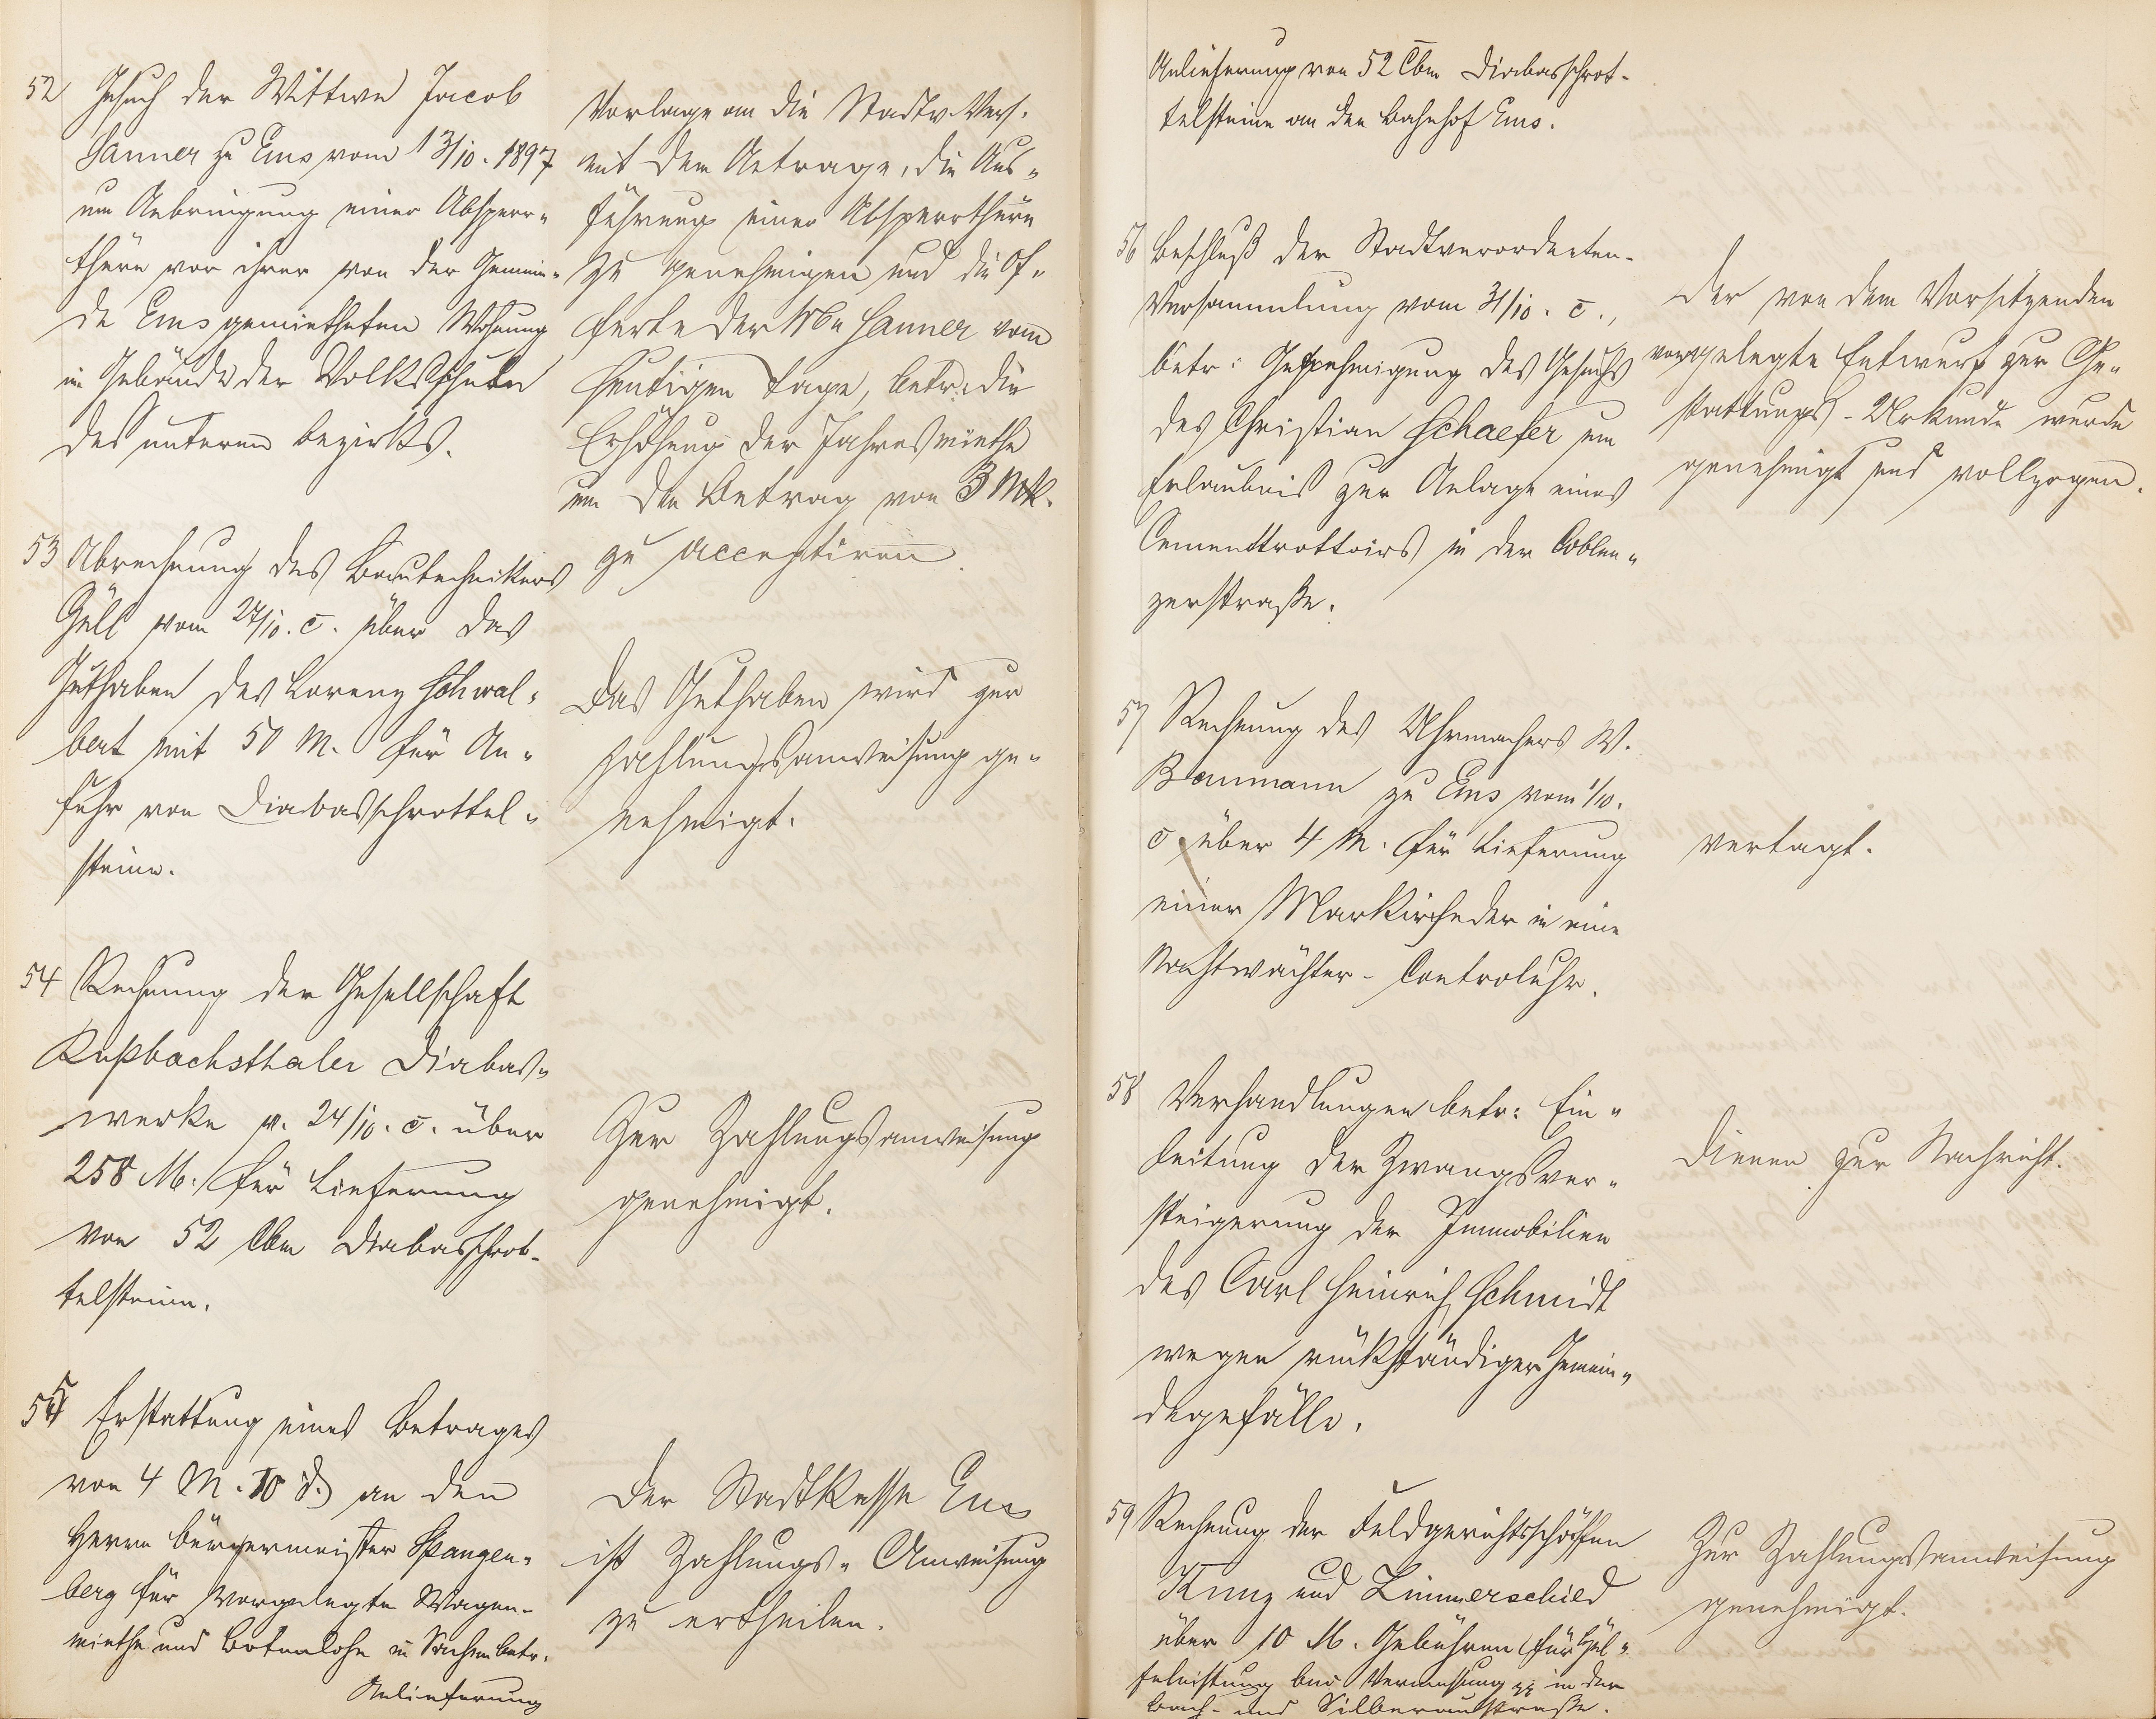 52 Gesuch der Wittwe Jacob
Hanner zu Ems vom 13/10. 1897
um Anbringung einer Absperr-
thüre vor ihrer von der Gemein-
de Ems gemietheten Wohnung
im Gebäude der Volksschule
des unteren Bezirks.
Vorlage an die Stadtv. Vers.
mit dem Antrage, die Aus-
führung einer Absperrthüre
zu genehmigen und die Of-
ferte der Wwe Hanner vom
heutigen Tage, betr: die
Erhöhung der Jahresmiethe
um den Betrag von 3 Mk.
zu acceptiren.
53 Abrechnung des Bautechnikers
Güll vom 27/10. c. über das
Guthaben des Lorenz Schwal-
bert mit 50 M. für An-
fuhr von Diabasschrottel-
steine.
Das Guthaben wird zur
Zahlungsanweisung ge-
nehmigt.
54 Rechnung der Gesellschaft
Rupbachsthaler Diabas-
werke v. 24/10. c. über
258 M. für Lieferung
von 52 Cbm Diabasschrot-
telsteine.
Zur Zahlungsanweisung
genehmigt.
55 Erstattung eines Betrages
von 4 M. 10 d. an den
Herrn Bürgermeister Spangen-
berg für vorgelegte Wagen-
miethe und Botenlohn in Sachen betr.
Anlieferung
Der Stadtkasse Ems
ist Zahlungs-Anweisung
zu ertheilen.
Anlieferung von 52 Cbm Diabasschrot-
telsteine an den Bahnhof Ems.
56 Beschluß der Stadtverordneten-
Versammlung vom 31/10. c.,
betr: Genehmigung des Gesuchs
des Christian Schaefer um
Erlaubniß zur Anlage eines
Cementtrottoirs in der Coblen-
zerstraße.
Der von dem Vorsitzenden
vorgelegte Entwurf zur Ge-
stattungs-Urkunde wurde
genehmigt und vollzogen.
57 Rechnung des Uhrmachers W.
Baumann zu Ems vom 1/10.
c. über 4 M. für Lieferung
einer Markirfeder in eine
Nachtwächter-Controluhr.
Vertagt.
58 Verhandlungen betr: Ein-
leitung der Zwangsver-
steigerung der Immobilien
des Carl Heinrich Schmidt
wegen rückständiger Gemein-
degefälle.
Dienen zur Nachricht.
59 Rechnung der Feldgerichtsschöffen
Kunz und Linnerschied
über 10 M. Gebühren für Hül-
feleistung bei Vermessung pp in der
Bach- und Silberaustraße.
Zur Zahlungsanweisung
genehmigt.